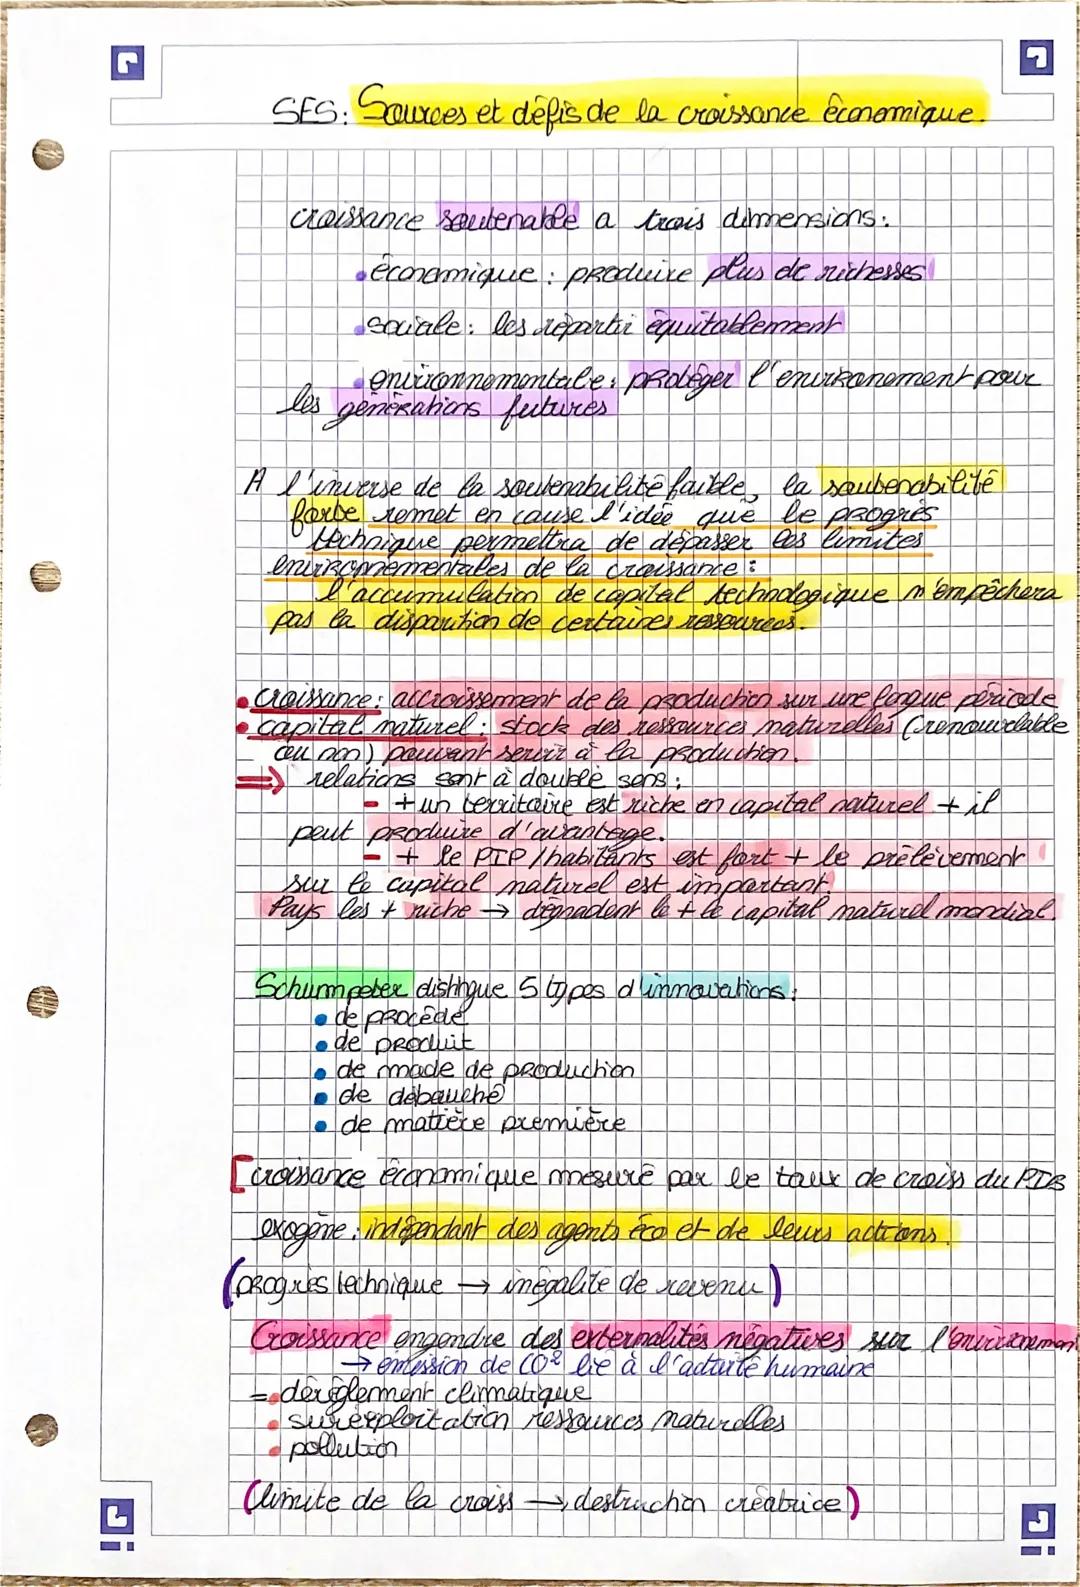 SES: Sources et défis de la croissance économique.
croissance soutenable a trois dimensions:
• économique : produire plus de richesses
• sociale : les répartir équitablement
• environnementale : protéger l'environement pour
les générations futures
A l'inverse de la soutenabilité faible, la soutenabilité
forte remet en cause l'idée que le progrès
technique permettra de dépasser les limites
environnementales de la croissance :
l'accumulation de capital technologique n'empêchera
pas la disparition de certaines ressources.
• croissance : accroissement de la production sur une longue période
• capital naturel : stock des ressources naturelles (renouvelable
ou non) pouvant servir à la production.
=> relations sont à double sens :
- + un territoire est riche en capital naturel + il
peut produire d'avantage.
- + le PIP/habitants est fort + le prélèvement
sur le capital naturel est important.
Pays les + riche → dégradent le + le capital naturel mondial.
Schumpeter distingue 5 types d'innovations :
• de procédé
• de produit
• de mode de production
• de débouché
• de matière première
[croissance économique mesuré par le taux de croiss du PIB
exogène : indépendant des agents éco et de leurs actions.
(progrès technique → inégalité de revenu)
Croissance engendre des externalités négatives sur l'environement
→ émission de CO² lié à l'activité humaine
= • déréglement climatique
• surexploitation ressources naturelles
• pollution
(limite de la croiss → destruction créatrice)